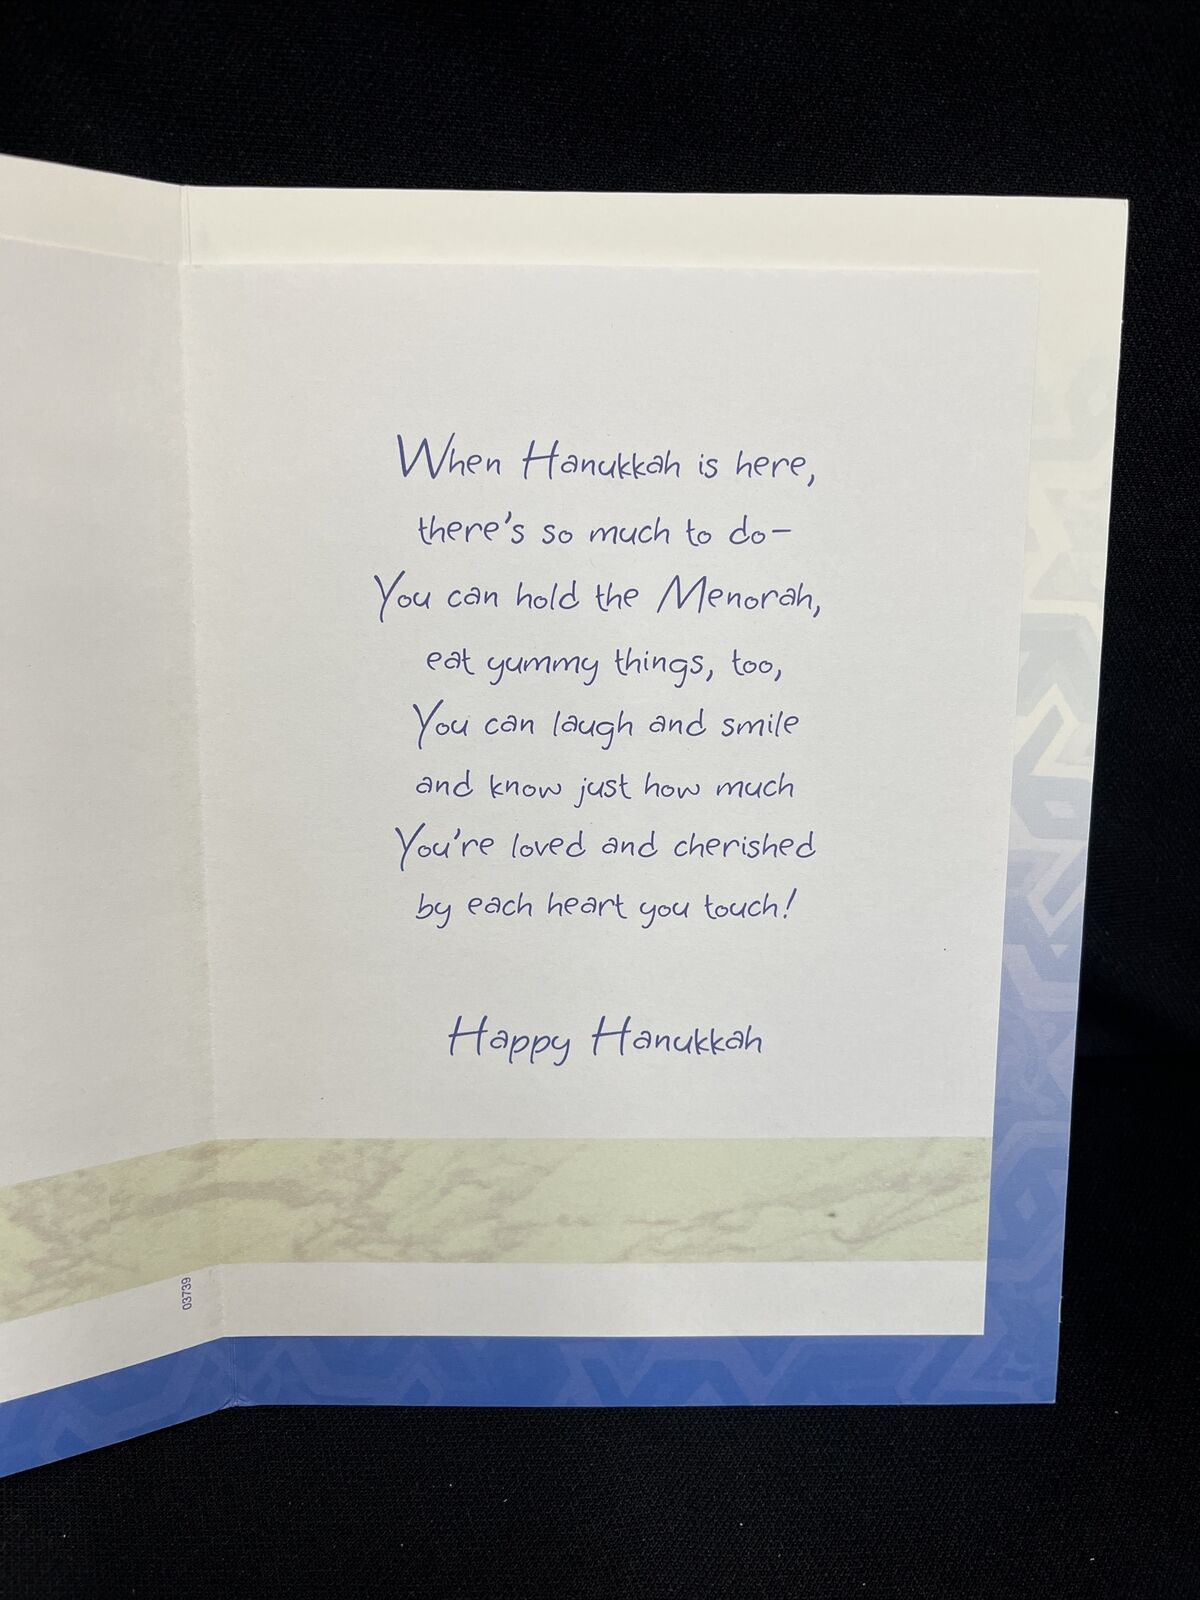 When Hanukkah is here,
there's so much to do-
You can hold the Menorah,
eat yummy things, too,
You can laugh and smile
and know just how much
You're loved and cherished
by each heart you touch!
Happy Hanukkah
03739